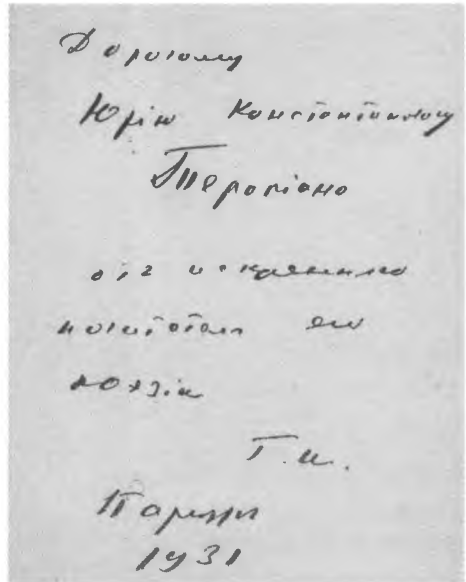 Дорогому
Юрію Константиновичу
Терапіано
отъ искренняго
почитателя его
поэзіи
Г. И.
Парижъ
1931